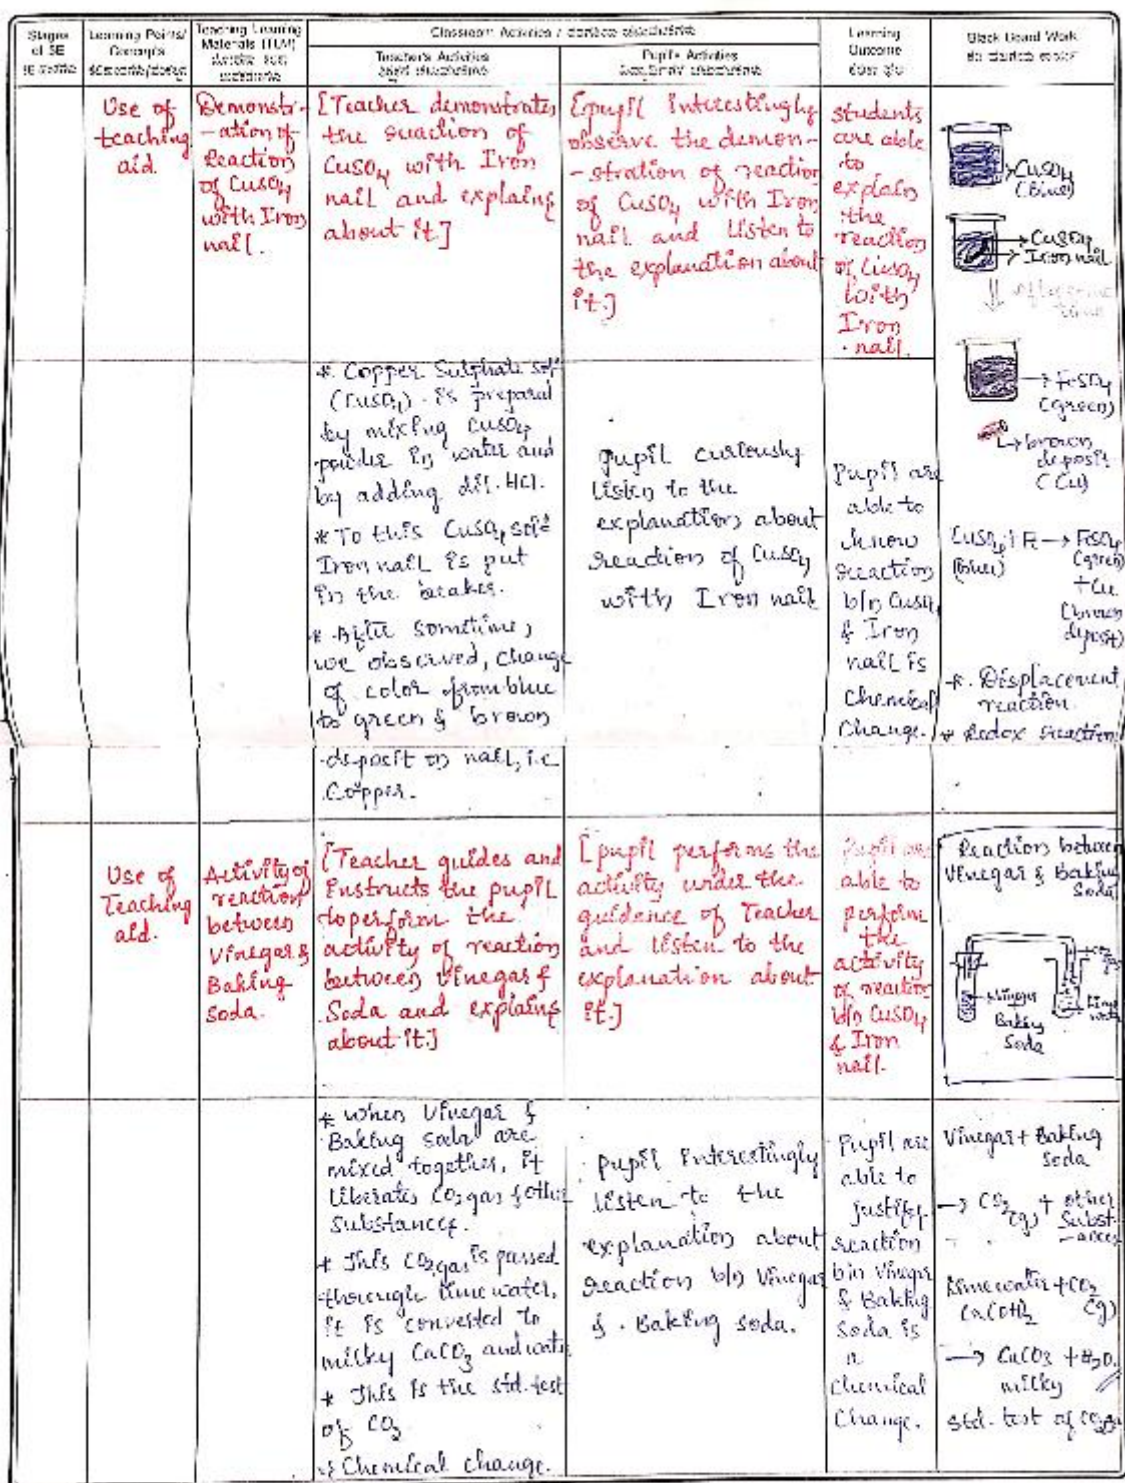 Stages of 5E
Learning Points/ Concepts
Teaching Learning Materials (TLM)
Classroom Activities /
Teacher's Activities
Pupil's Activities
Learning Outcome
Black Board Work
Use of
teaching
aid.
Demonstr-
-ation of
Reaction
of CuSO4
with Iron
nail.
[Teacher demonstrates
the reaction of
CuSO4 with Iron
nail and explains
about it]
[pupil Interestingly
observe the demon-
-stration of reaction
of CuSO4 with Iron
nail and listen to
the explanation about
it.]
students
are able
to
explain
the
reaction
of CuSO4
with
Iron
nail.
CuSO4
(blue)
CuSO4
Iron nail
FeSO4
(green)
brown
deposit
(Cu)
* Copper Sulphate sol
(CuSO4) is prepared
by mixing CuSO4
powder in water and
by adding dil. HCl.
* To this CuSO4
Iron nail is put
in the beaker.
* After sometime,
we observed, change
of color from blue
to green & brown
deposit on nail, i.e
Copper.
Pupil curiously
listen to the
explanation about
reaction of CuSO4
with Iron nail
Pupil are
able to
know
reaction
b/n CuSO4
& Iron
nail is
Chemical
Change.
CuSO4 + Fe → FeSO4
(blue) (green)
+ Cu
(brown
deposit)
*. Displacement
reaction.
* Redox reaction
Use of
Teaching
aid.
Activity of
reaction
between
Vinegar &
Baking
Soda.
[Teacher guides and
Instructs the pupil
to perform the
activity of reaction
between Vinegar &
Soda and explains
about it.]
[pupil performs the
activity under the
guidance of Teacher
and listen to the
explanation about
it.]
Pupil are
able to
perform
the
activity
of reaction
b/n CuSO4
& Iron
nail.
Reaction between
Vinegar & Baking
Soda
Vinegar
Baking
Soda
lime
water
* When Vinegar &
Baking soda are
mixed together, it
liberates CO2 gas & other
substances.
* This CO2 gas is passed
through lime water,
it is converted to
milky CaCO3 and water
* This is the std. test
of CO2
* Chemical change.
pupil Interestingly
listen to the
explanation about
reaction b/n Vinegar
& . Baking soda.
Pupil are
able to
justify
reaction
b/n Vinegar
& Baking
Soda is
a
chemical
Change.
Vinegar + Baking
soda
→ CO2 (g) + other
Subst-
-ances
Lime water + CO2
Ca(OH)2 (g)
→ CaCO3 + H2O.
milky
std. test of CO2